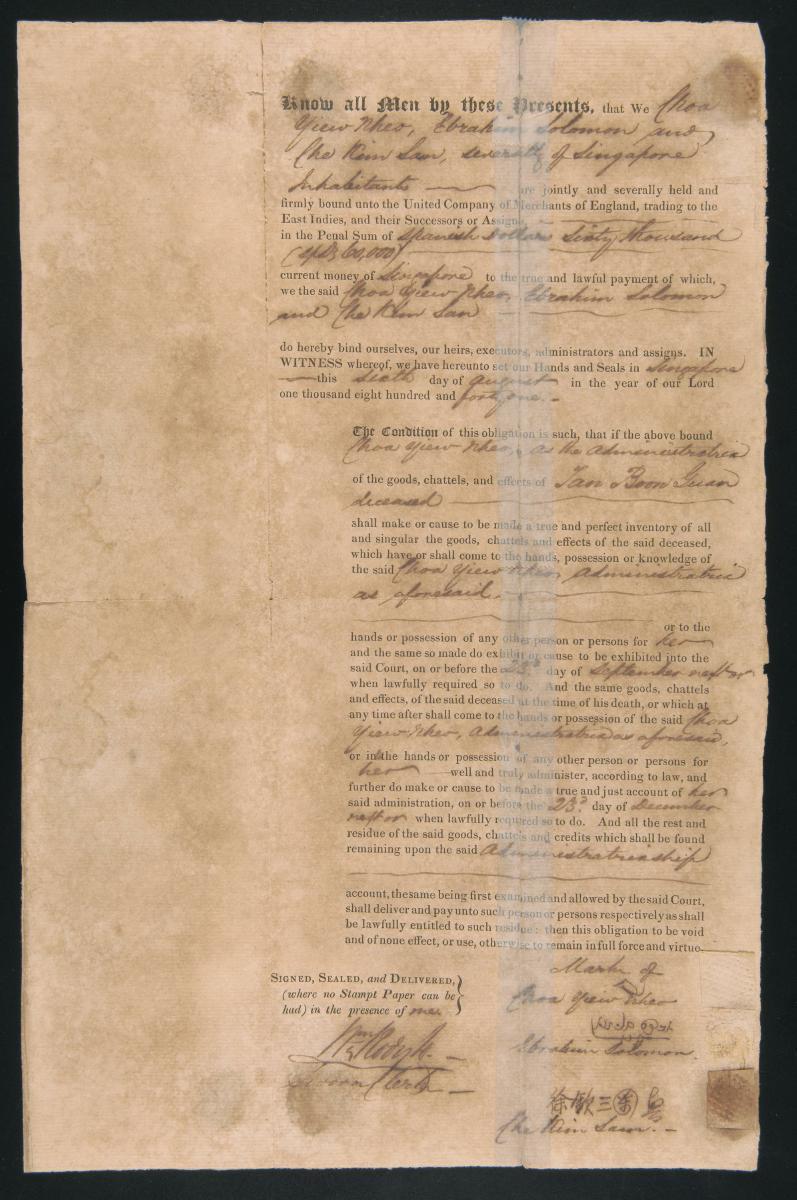 Know all Men by these Presents, that We Choa
Yiew Nheo, Ebrahim Solomon and
Che Kim San, severally of Singapore
Inhabitants are jointly and severally held and
firmly bound unto the United Company of Merchants of England, trading to the
East Indies, and their Successors or Assigns,
in the Penal Sum of Spanish Dollars Sixty thousand
60,000)
current money of Singapore to the true and lawful payment of which,
we the said Choa Yiew Nheo, Ebrahim Solomon
and Che Kim San
do hereby bind ourselves, our heirs, executors, administrators and assigns. IN
WITNESS whereof, we have hereunto set our Hands and Seals in Singapore
this Sixth day of August in the year of our Lord
one thousand eight hundred and forty one.-
The Condition of this obligation is such, that if the above bound
Choa Yiew Nheo, as the Administratrix
of the goods, chattels, and effects of Tan Boon Guan
deceased
shall make or cause to be made a true and perfect inventory of all
and singular the goods, chattels and effects of the said deceased,
which have or shall come to the hands, possession or knowledge of
the said Choa Yiew Nheo, Administratrix
as aforesaid.
or to the
hands or possession of any other person or persons for her
and the same so made do exhibit or cause to be exhibited into the
said Court, on or before the 23d. day of September next or
when lawfully required so to do. And the same goods, chattels
and effects, of the said deceased at the time of his death, or which at
any time after shall come to the hands or possession of the said Choa
Yiew Nheo, Administratrix as aforesaid,
or in the hands or possession of any other person or persons for
her well and truly administer, according to law, and
further do make or cause to be made a true and just account of her
said administration, on or before the 23d. day of December
next or when lawfully required so to do. And all the rest and
residue of the said goods, chattels and credits which shall be found
remaining upon the said Administratrixship
account, the same being first examined and allowed by the said Court,
shall deliver and pay unto such person or persons respectively as shall
be lawfully entitled to such residue: then this obligation to be void
and of none effect, or use, otherwise to remain in full force and virtue.
Mark of
Choa Yiew Nheo
SIGNED, SEALED, and DELIVERED,
(where no Stampt Paper can be
had) in the presence of me.
Ebrahim Solomon.
Sworn Clerk
徐欽三
Che Kim San.-